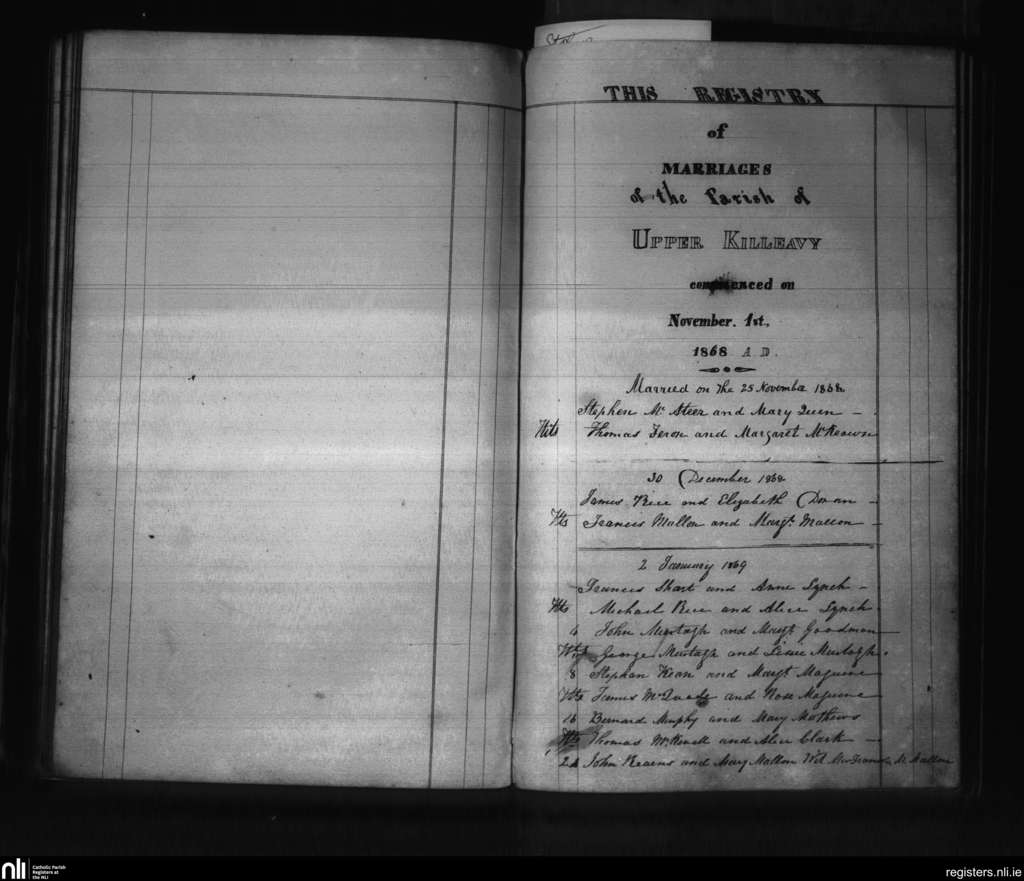 THIS REGISTRY
of
MARRIAGES
of the Parish of
UPPER KILLEAVY
commenced on
November. 1st.,
1868 A D.
Married on the 25 November 1868
Stephen Mc Steer and Mary Quin
Wits Thomas Feron and Margaret McKeown
30 December 1868
James Rice and Elizabeth Doran
Wts Francis Mallon and Margt. Mallon
2 January 1869
Francis Short and Anne Lynch
Wts Michael Rice and Alice Lynch
John Murtagh and Margt Goodman
George Murtagh and Murtagh
8 Stephen Kean and Margt Maguire
Wts James McQuade and Rose Maguire
16 Bernard Murphy and Mary Mathews
Thomas and Alice Clark
John Kearns and Mary Mallon
nli
Catholic Parish
Registers at
the NLI
registers.nli.ie